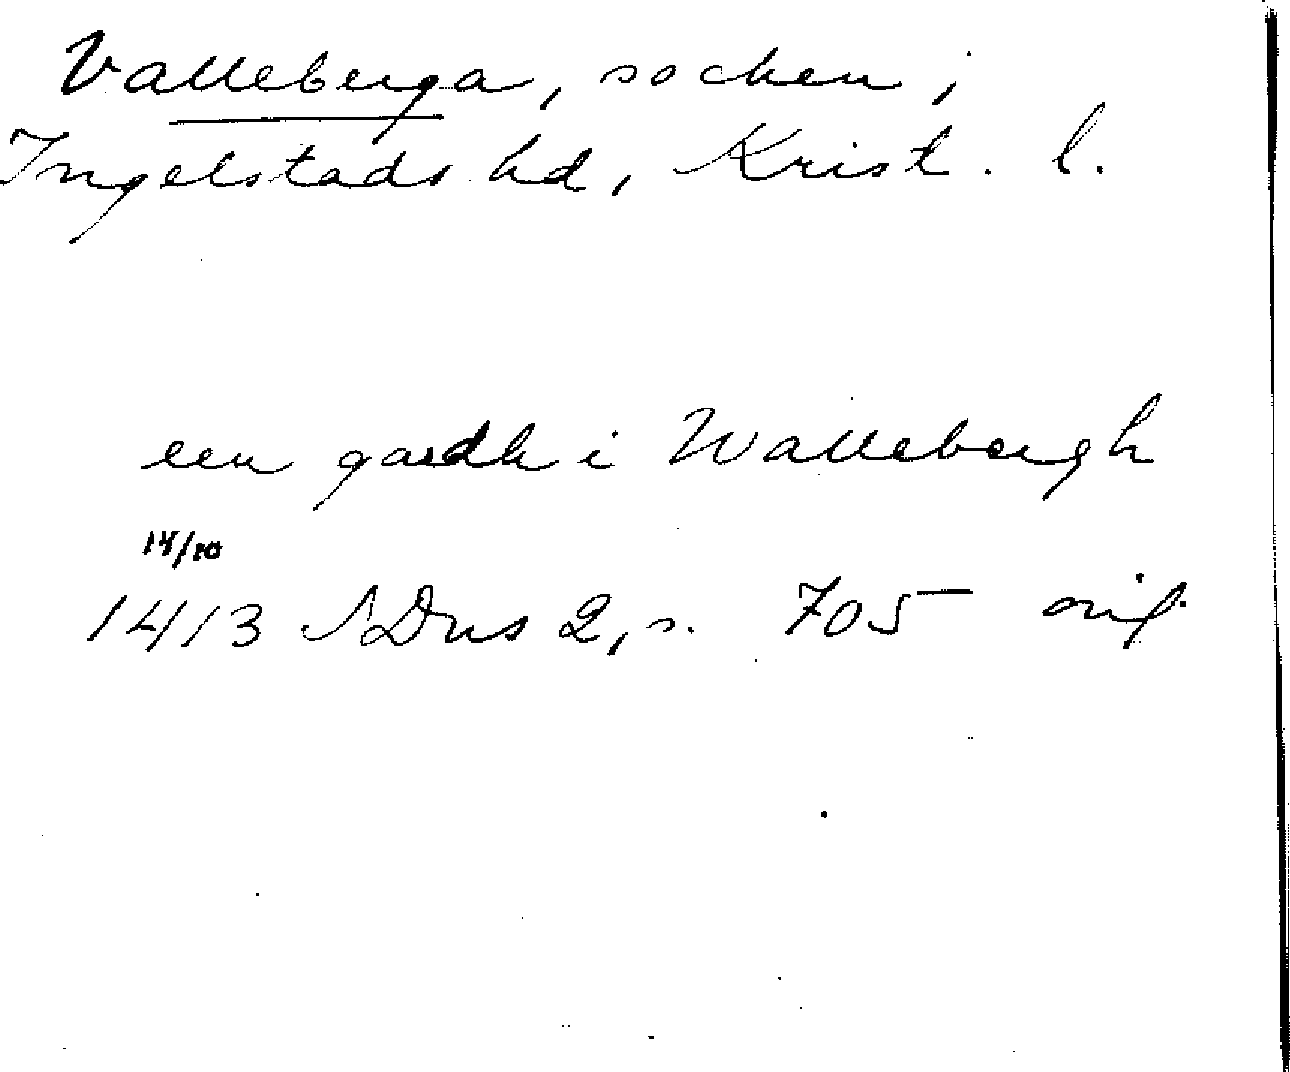 Valleberga, socken i
Ingelstads hd, Krist. l.
een gardh i Wallebergh
14/10
1413 SDns 2, s. 705 orig.